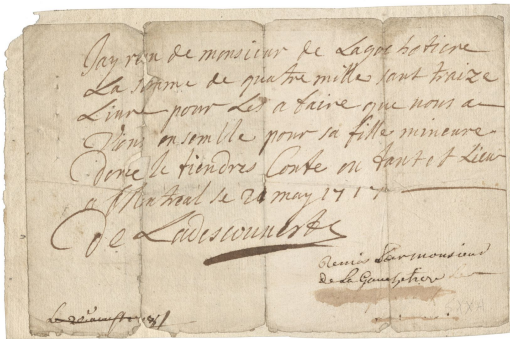 Jay reu de monsieur de Lagochetiere
La somme de quatre mille sant traize
Livre pour Les afaire que nous a
Vions ensemble pour sa fille mineure
Donc Je tiendres Conte ou tant et Lieu
a Montreal le 21 may 1717
De Ladescouverte
Remis Par monsieur
de La Gauchetiere